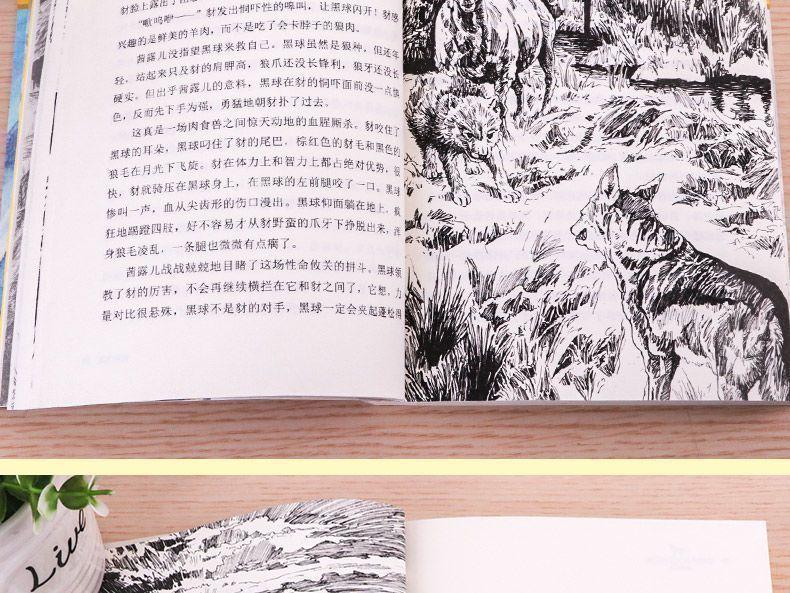 “嗷呜咿——”豺发出恫吓性的嗥叫，让黑球闪开！豺感
兴趣的是鲜美的羊肉，而不是吃了会卡脖子的狼肉。
茜露儿没指望黑球来救自己。黑球虽然是狼种，但还年
轻，站起来只及豺的肩胛高，狼爪还没长锋利，狼牙还没长
硬实。但出乎茜露儿的意料，黑球在豺的恫吓面前没一点惧
色，反而先下手为强，勇猛地朝豺扑了过去。
这真是一场肉食兽之间惊天动地的血腥厮杀。豺咬住了
黑球的耳朵，黑球叼住了豺的尾巴，棕红色的豺毛和黑色的
狼毛在月光下飞旋。豺在体力上和智力上都占绝对优势，很
快，豺就骑压在黑球身上，在黑球的左前腿咬了一口。黑球
惨叫一声，血从尖齿形的伤口漫出。黑球仰面躺在地上，疯
狂地踢蹬四肢，好不容易才从豺野蛮的爪牙下挣脱出来，浑
身狼毛凌乱，一条腿也微微有点瘸了。
茜露儿战战兢兢地目睹了这场性命攸关的拼斗。黑球领
教了豺的厉害，不会再继续横拦在它和豺之间了，它想。力
量对比很悬殊，黑球不是豺的对手，黑球一定会夹起蓬松得
Live